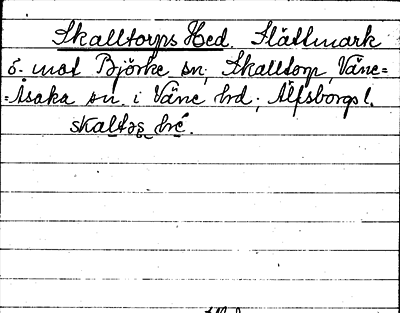 Skalltorps Hed. Slättmark
ö. mot Björke sn; Skalltorp, Väne=
=Åsaka sn. i Väne hd; Älfsborgs l.
skaltɔs he.